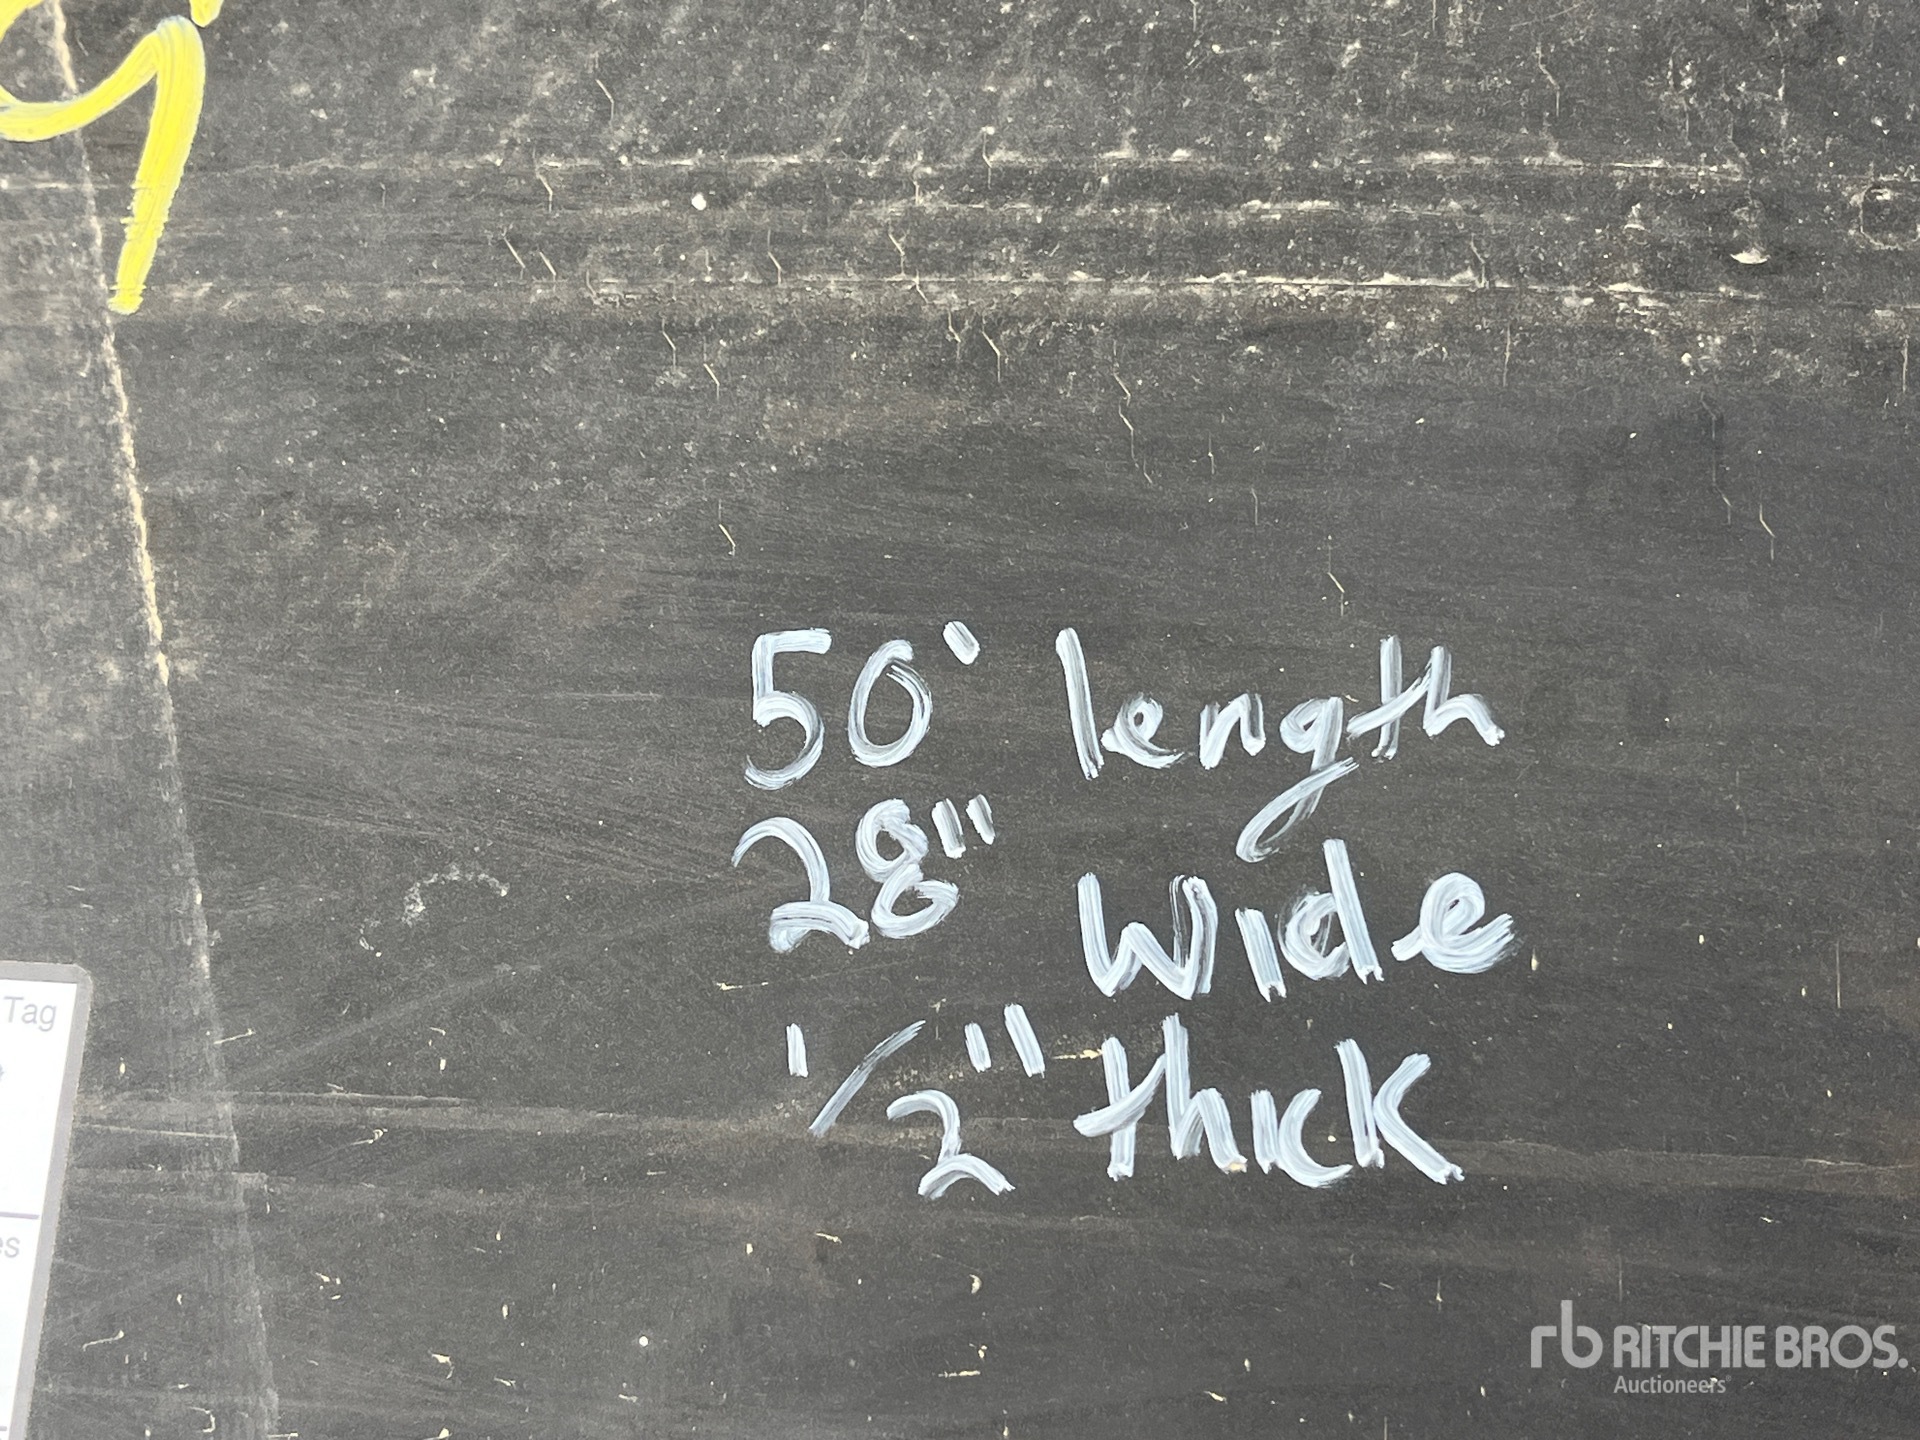 9
Tag
es
50' length
28" wide
1/2" thick
rb RITCHIE BROS.
Auctioneers